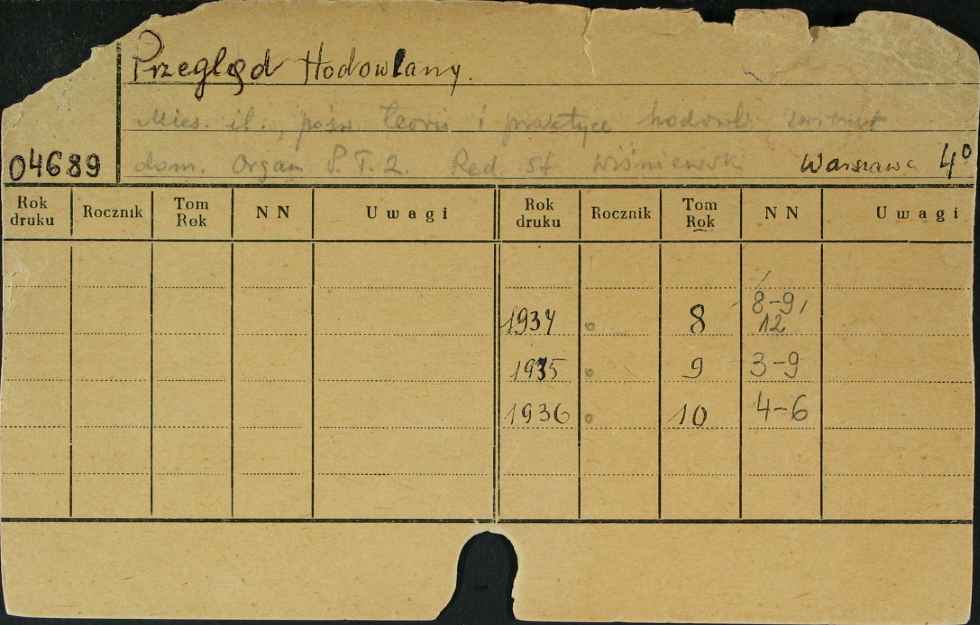 Przegląd Hodowlany.
Mies. il., pośw. teorii i praktyce hodowli zwierząt
04689 dom. Organ P.T.Z. Red. St. Wiśniewski Warszawa 4°
Rok druku Rocznik Tom Rok NN Uwagi Rok druku Rocznik Tom Rok NN Uwagi
1934 8 8-9, 12
1935 9 3-9
1936 10 4-6